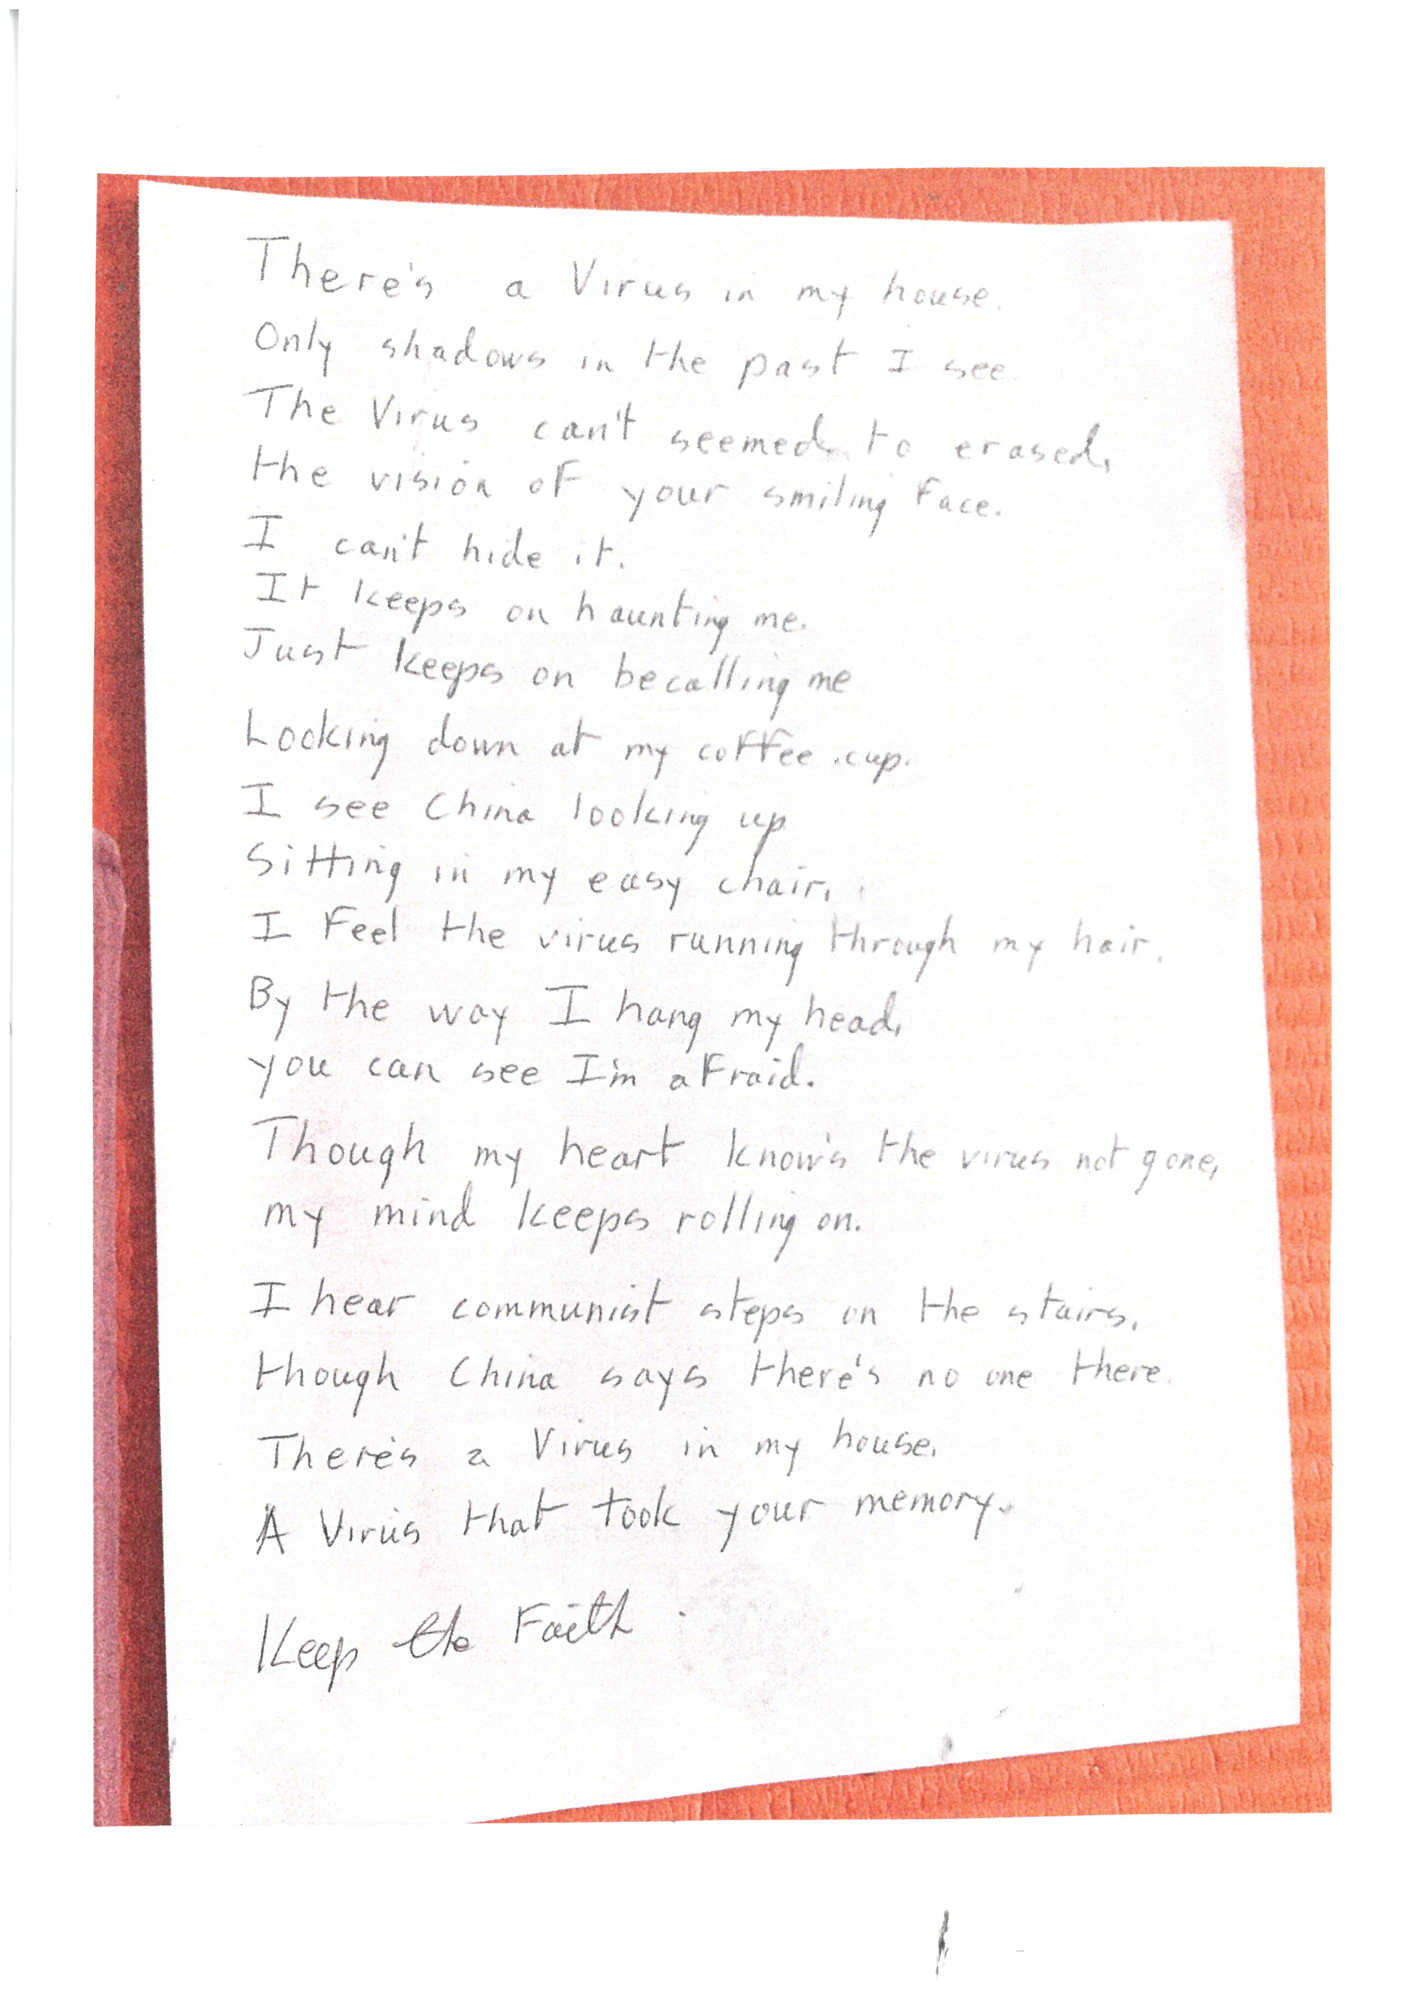 There's a Virus in my house.
Only shadows in the past I see
The Virus can't seemed to erased,
the vision of your smiling face.
I can't hide it.
It keeps on haunting me.
Just keeps on becalling me
Looking down at my coffee cup.
I see China looking up
Sitting in my easy chair,
I feel the virus running through my hair.
By the way I hang my head,
you can see I'm afraid.
Though my heart know's the virus not gone,
my mind keeps rolling on.
I hear communist steps on the stairs,
though China says there's no one there.
There's a Virus in my house,
A Virus that took your memory.
Keep the Faith